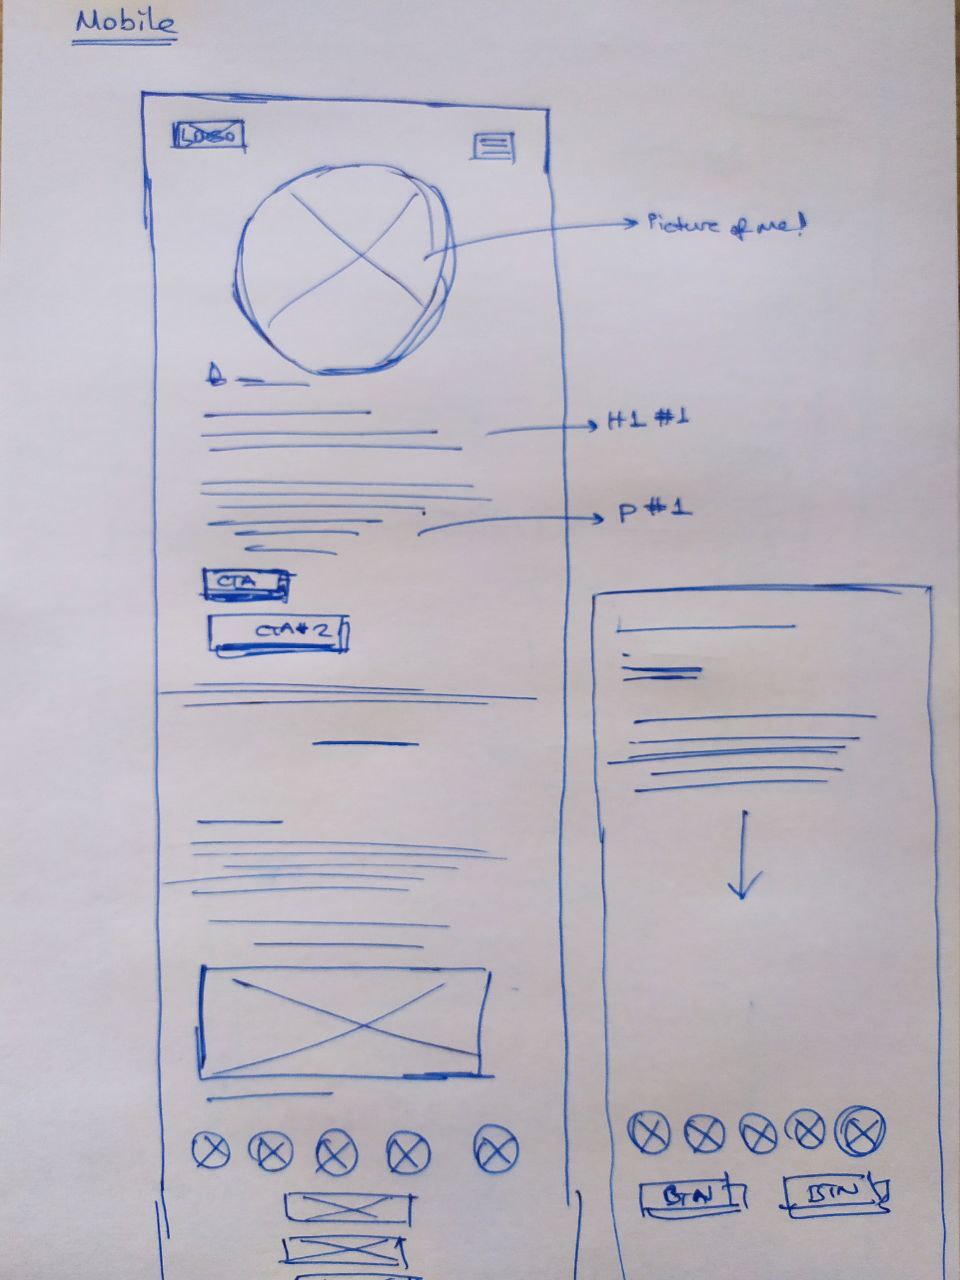 Mobile
LOGO
Picture of me!
H1 #1
P #1
CTA
CTA #2
BTN
BTN